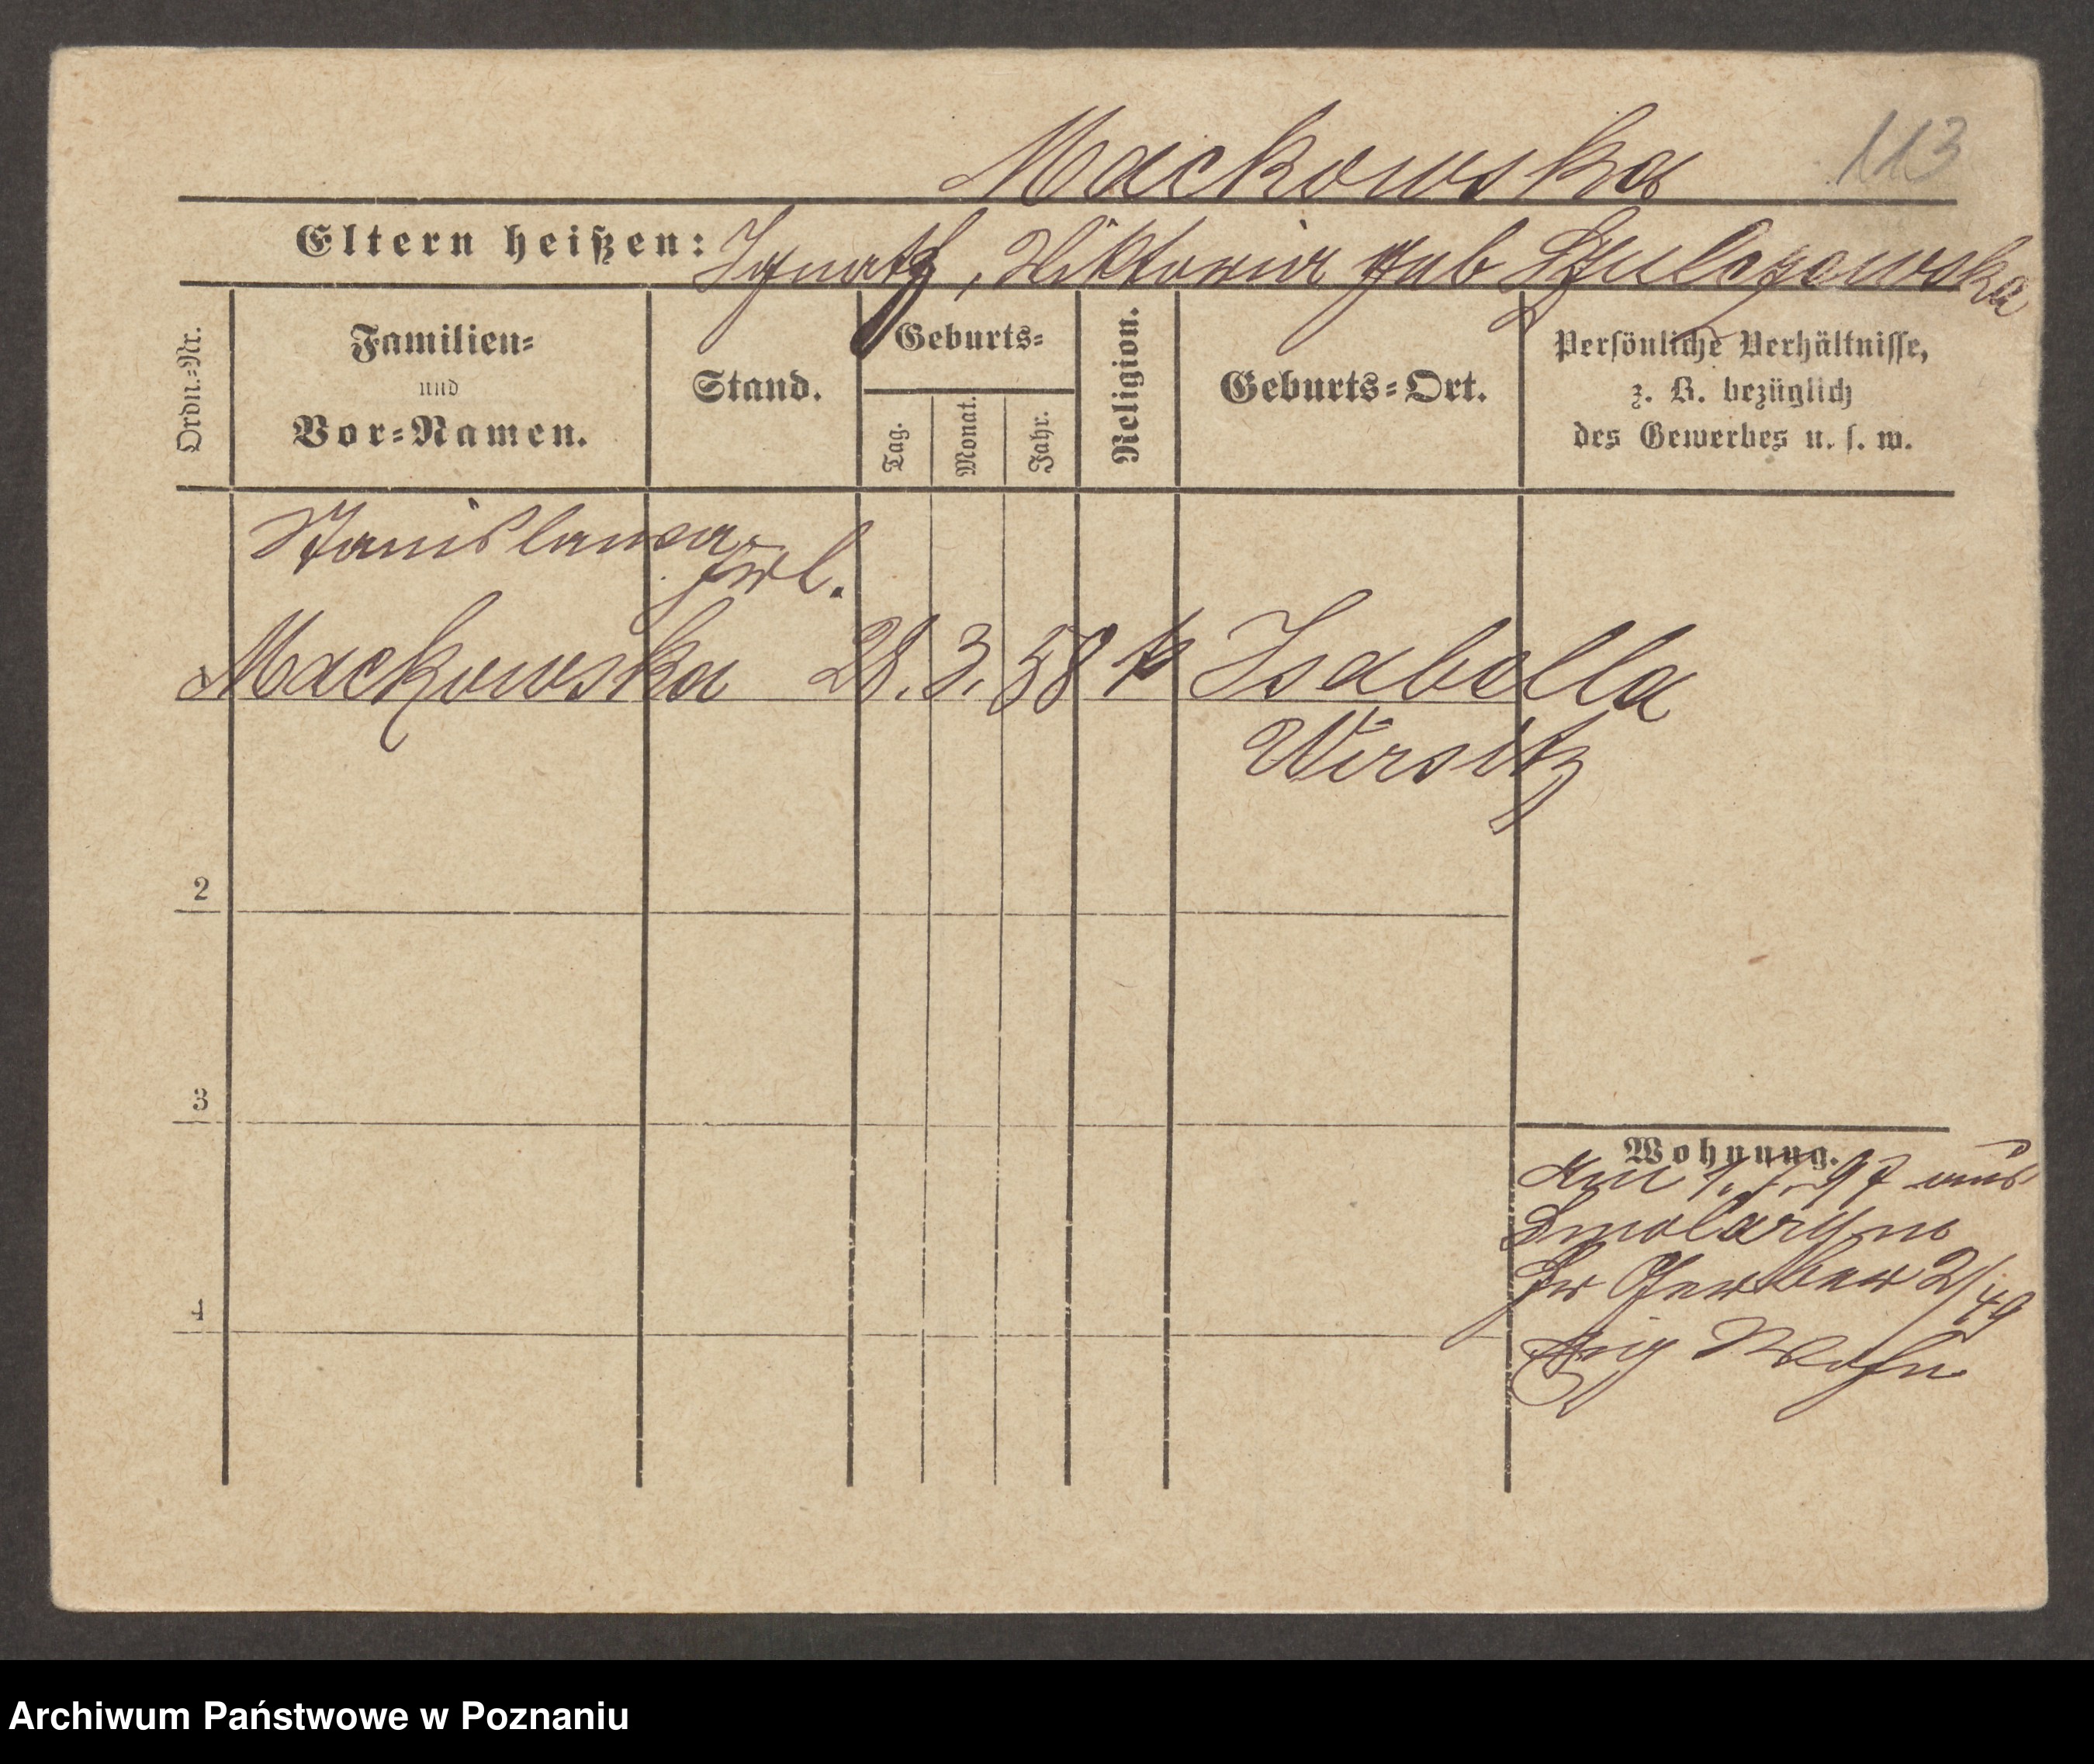 Mackowska 113
Eltern heißen: Ignatz, Viktoria geb Szulczewska
Ordn.-Nr.
Familien-
und
Vor-Namen.
Stand.
Geburts-
Tag.
Monat.
Jahr.
Religion.
Geburts-Ort.
Persönliche Verhältnisse,
z. B. bezüglich
des Gewerbes u. s. w.
Stanislawa
frl.
Mackowska 28. 3. 58 k Isabella
Wirsitz
2
3
4
Wohnung.
Am 1. 7. 97 aus
Smolary
Gr Gerber 49
Eig Wohn
Archiwum Państwowe w Poznaniu